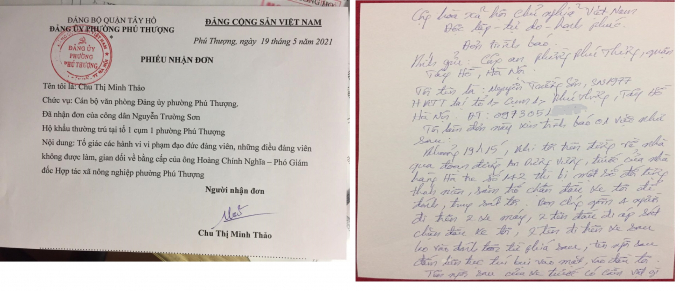 ĐẢNG BỘ QUẬN TÂY HỒ
ĐẢNG ỦY PHƯỜNG PHÚ THƯỢNG
ĐẢNG CỘNG SẢN VIỆT NAM
Phú Thượng, ngày 19 tháng 5 năm 2021
ĐẢNG ỦY
PHƯỜNG
PHÚ THƯỢNG
PHIẾU NHẬN ĐƠN
Tên tôi là: Chu Thị Minh Thảo
Chức vụ: Cán bộ văn phòng Đảng ủy phường Phú Thượng.
Đã nhận đơn của công dân Nguyễn Trường Sơn
Hộ khẩu thường trú tại tổ 1 cụm 1 phường Phú Thượng
Nội dung: Tố giác các hành vi vi phạm đạo đức đảng viên, những điều đảng viên
không được làm, gian dối về bằng cấp của ông Hoàng Chính Nghĩa – Phó Giám
đốc Hợp tác xã nông nghiệp phường Phú Thượng
Người nhận đơn
Chu Thị Minh Thảo
Cộng hòa xã hội chủ nghĩa Việt Nam
Độc lập - tự do - hạnh phúc
Đơn trình báo
Kính gửi: Công an phường Phú Thượng, quận
Tây Hồ, Hà Nội.
Tôi tên là: Nguyễn Trường Sơn, SN 1977
HKTT tại tổ 1, cụm 1, Phú Thượng, Tây Hồ
Hà Nội ĐT: 097305
Tôi làm đơn này xin trình báo 01 việc như
sau:
19h15, khi tôi trên đường về nhà
qua đoạn đường An Dương Vương, trước cửa nhà
hàng số 142 thì bị một số đối tượng
chặn đầu xe tôi để
đánh, tôi. Bao gồm 4 người
đi trên 2 xe máy, 2 tên
chặn đầu xe tôi, 2 tên đi trên xe sau
lao vào đánh tôi từ phía sau, tên ngồi sau
đấm liên tục vào mặt, vào đầu tôi.
Tên ngồi sau của xe trước có cầm vật gì